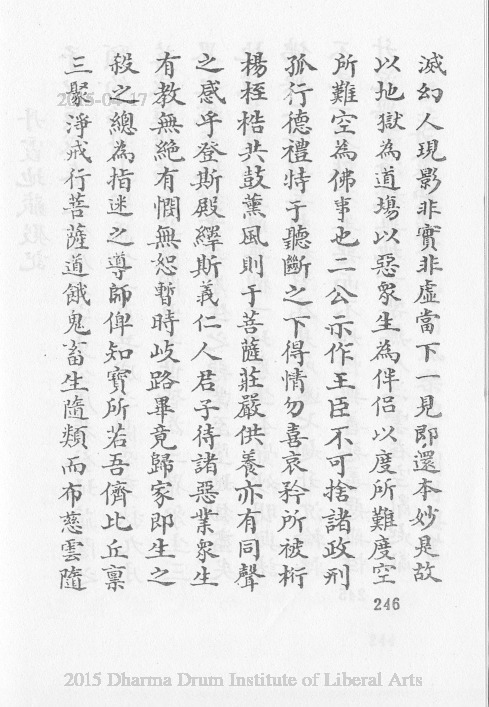 滅幻人現影非實非虛當下一見即還本妙是故
以地獄為道場以惡眾生為伴侶以度所難度空
所難空為佛事也二公示作王臣不可捨諸政刑
孤行德禮恃于聽斷之下得情勿喜哀矜所被桁
楊桎梏共鼓薰風則于菩薩莊嚴供養亦有同聲
之感乎登斯殿繹斯義仁人君子待諸惡業眾生
有教無絕有憫無恕暫時歧路畢竟歸家即生之
殺之總為指迷之導師俾知寶所若吾儕比丘稟
三聚淨戒行菩薩道餓鬼畜生隨類而布慈雲隨
246
2015-04-17
2015 Dharma Drum Institute of Liberal Arts